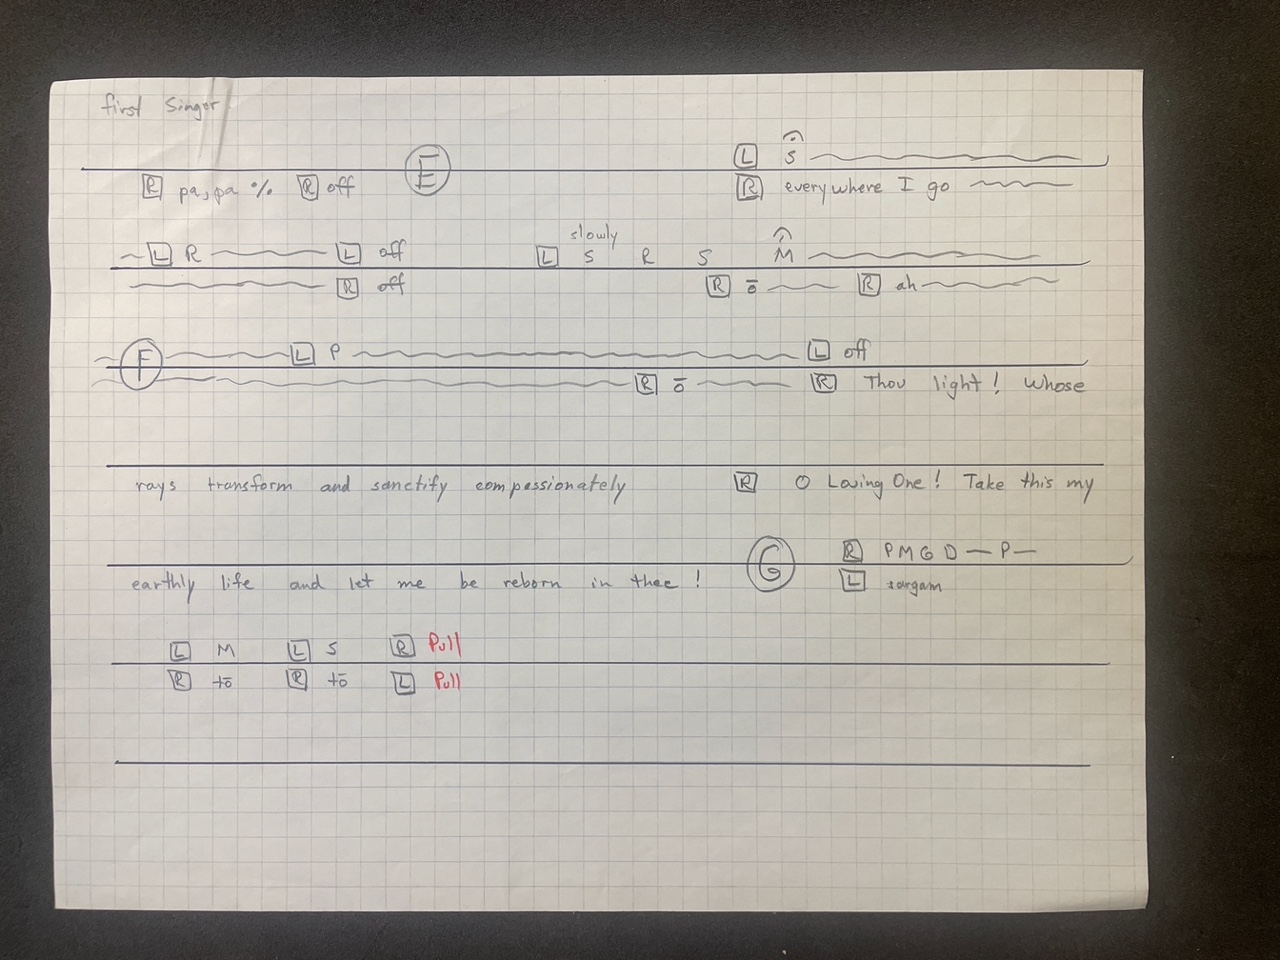 first Singer
L S
E
R pa, pa % R off R everywhere I go
slowly
L R L off L S R S M
R off R ō R ah
F L P L off
R ō R Thou light! Whose
rays transform and sanctify compassionately R O Loving One! Take this my
G R P M G D — P —
earthly life and let me be reborn in thee! L sargam
L M L S R Pull
R tō R tō L Pull